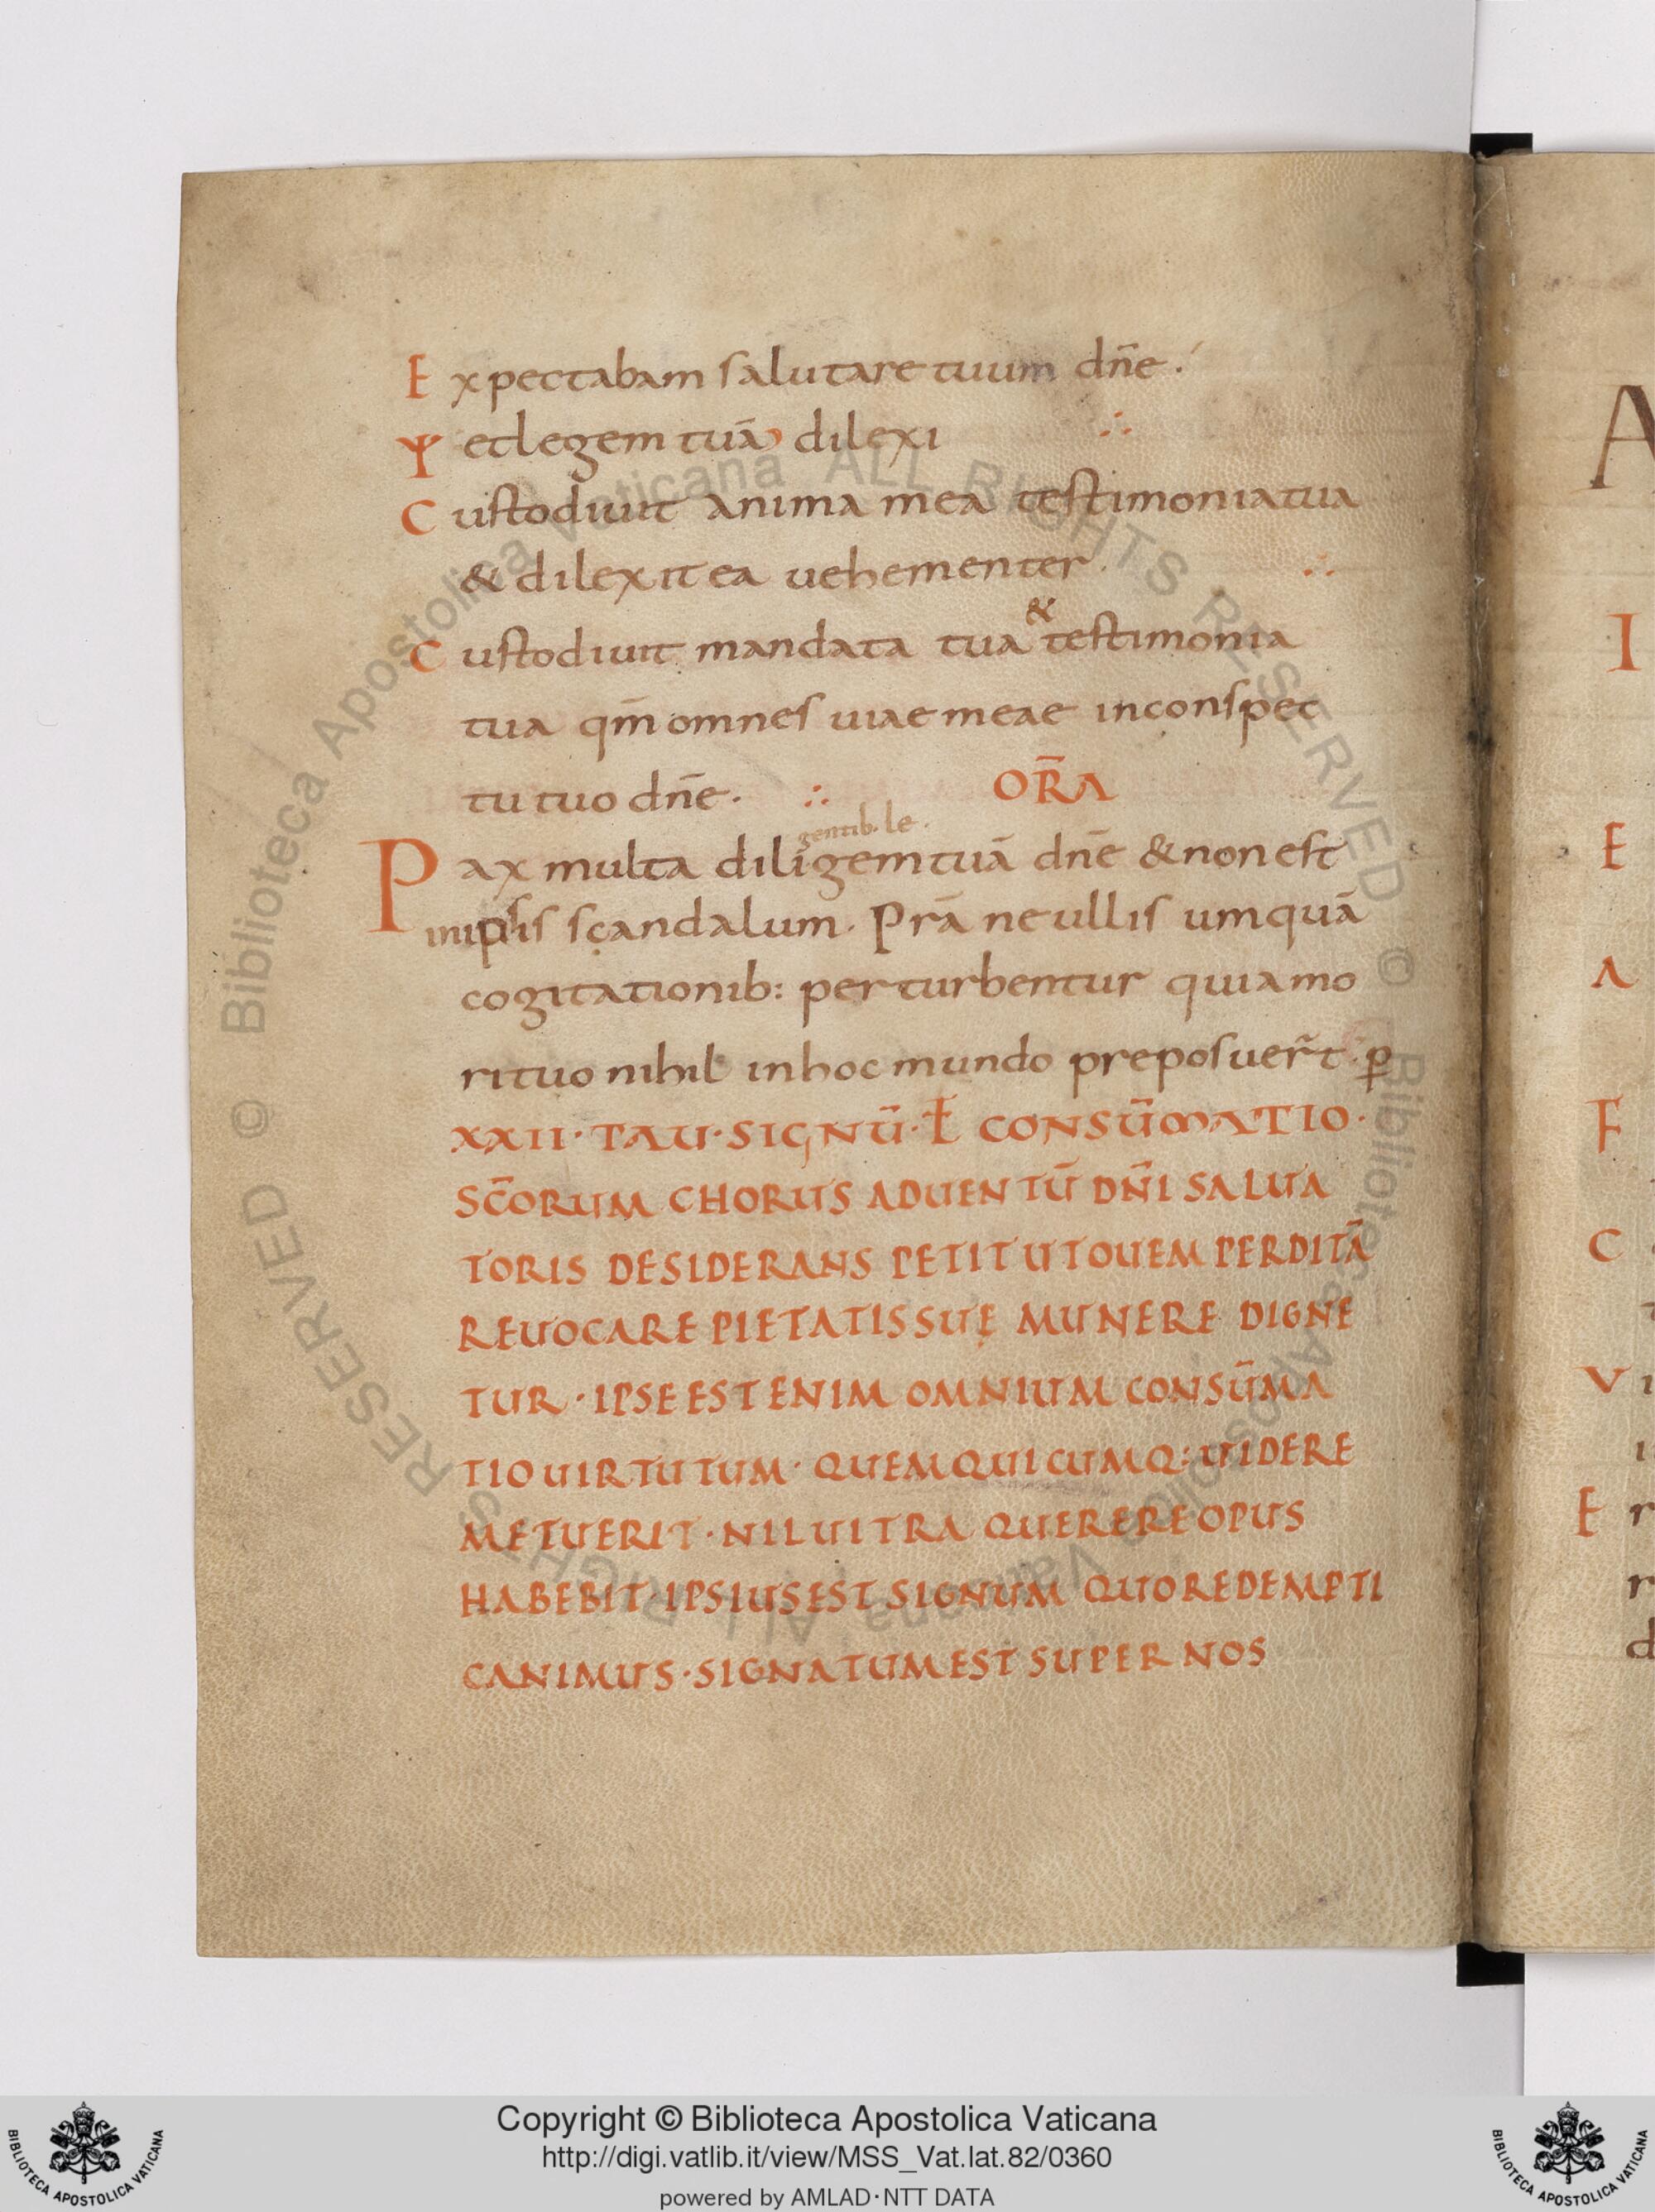 Expectabam salutare tuum dn̄e.
Ψ et legem tuā dilexi ∴
Custodiuit anima mea testimonia tua
& dilexit ea uehementer. ∴
&
Custodiuit mandata tua testimonia
tua qm̄ omnes uiae meae in conspec
tu tuo dn̄e. ∴ OR̄A
gentib. le.
Pax multa diligem tuā dn̄e & non est
in ipsis scandalum. Prā ne ullis umquā
cogitationib: perturbentur quia mo
rituo nihil in hoc mundo preposuer̃t. p
XXII · TAU · SIGNŪ · ł CONSŪMATIO ·
SC̄ORUM CHORUS ADUENTŪ DN̄I SALUA
TORIS DESIDERANS PETIT UT OUEM PERDITĀ
REUOCARE PIETATIS SUĘ MUNERE DIGNE
TUR · IPSE EST ENIM OMNIUM CONSŪMA
TIO UIRTUTUM · QUEM QUICUMQ: UIDERE
METUERIT · NIL UITRA QUERERE OPUS
HABEBIT · IPSIUS EST SIGNUM QUO REDEMPTI
CANIMUS · SIGNATUM EST SUPER NOS
A
I
E
A
F
C
V
E
© Biblioteca Apostolica Vaticana ALL RIGHTS RESERVED
© Biblioteca Apostolica Vaticana ALL RIGHTS RESERVED
Copyright © Biblioteca Apostolica Vaticana
http://digi.vatlib.it/view/MSS_Vat.lat.82/0360
powered by AMLAD·NTT DATA
BIBLIOTECA APOSTOLICA VATICANA
BIBLIOTECA APOSTOLICA VATICANA